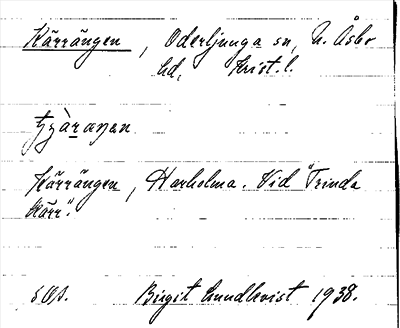 Kärrängen, Oderljunga sn, N. Åsbo
hd, Krist. l.
Kärrängen, Harholma. Vid "Trinda
Kärr".
s Os. Birgit Lundkvist 1938.